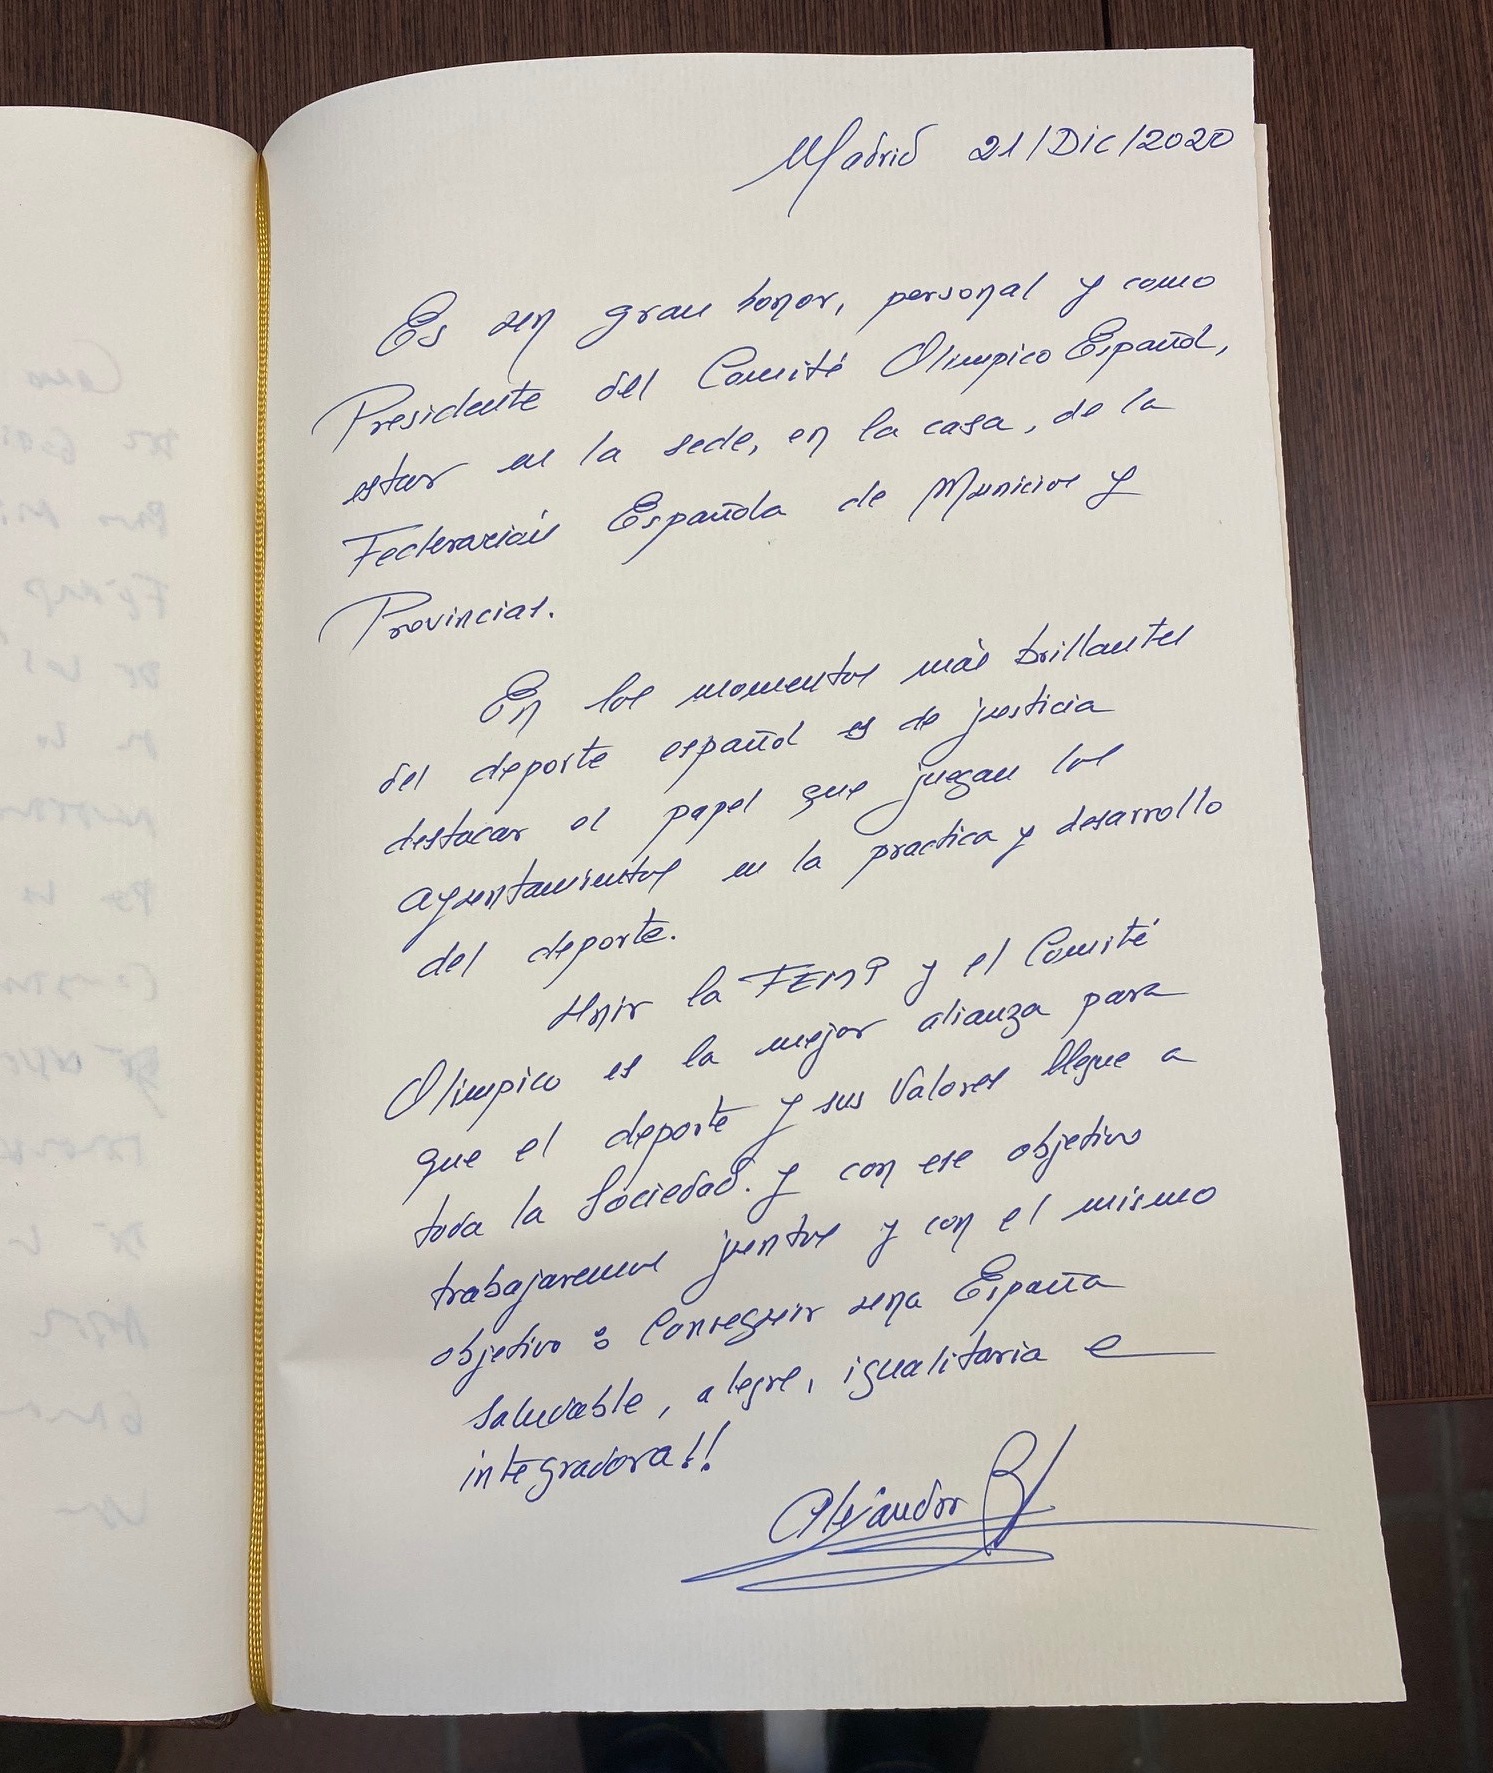 Madrid 21/Dic/2020
Es un gran honor, personal y como
Presidente del Comité Olimpico Español,
estar en la sede, en la casa, de la
Federación Española de Municios y
Provincias.
En los momentos más brillantes
del deporte español es de justicia
destacar el papel que juegan los
ayuntamientos en la practica y desarrollo
del deporte.
Unir la FEMP y el Comité
Olimpico es la mejor alianza para
que el deporte y sus Valores llegue a
toda la Sociedad. y con ese objetivo
trabajaremos juntos y con el mismo
objetivo: Conseguir una España
saludable, alegre, igualitaria e
integradora!!
Alejandro